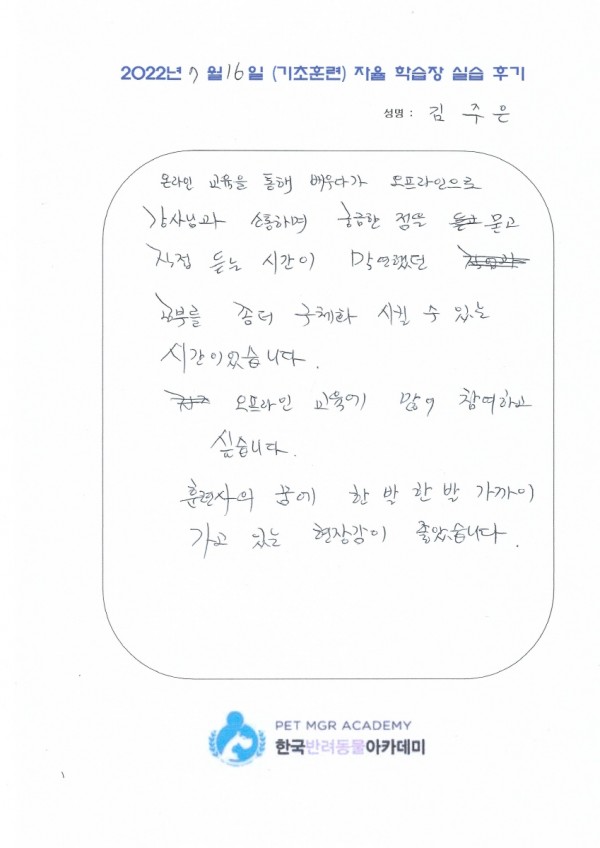 2022년 7 월 16 일 (기초훈련) 자율 학습장 실습 후기
성명 : 김 주 은
온라인 교육을 통해 배우다가 오프라인으로
강사님과 소통하며 궁금한 점또 묻고
직접 듣는 시간이 막연했던
공부를 좀더 구체화 시킬 수 있는
시간이었습니다.
오프라인 교육에 많이 참여하고
싶습니다.
훈련사의 꿈에 한 발 한 발 가까이
가고 있는 현장감이 좋았습니다.
PET MGR ACADEMY
한국반려동물아카데미